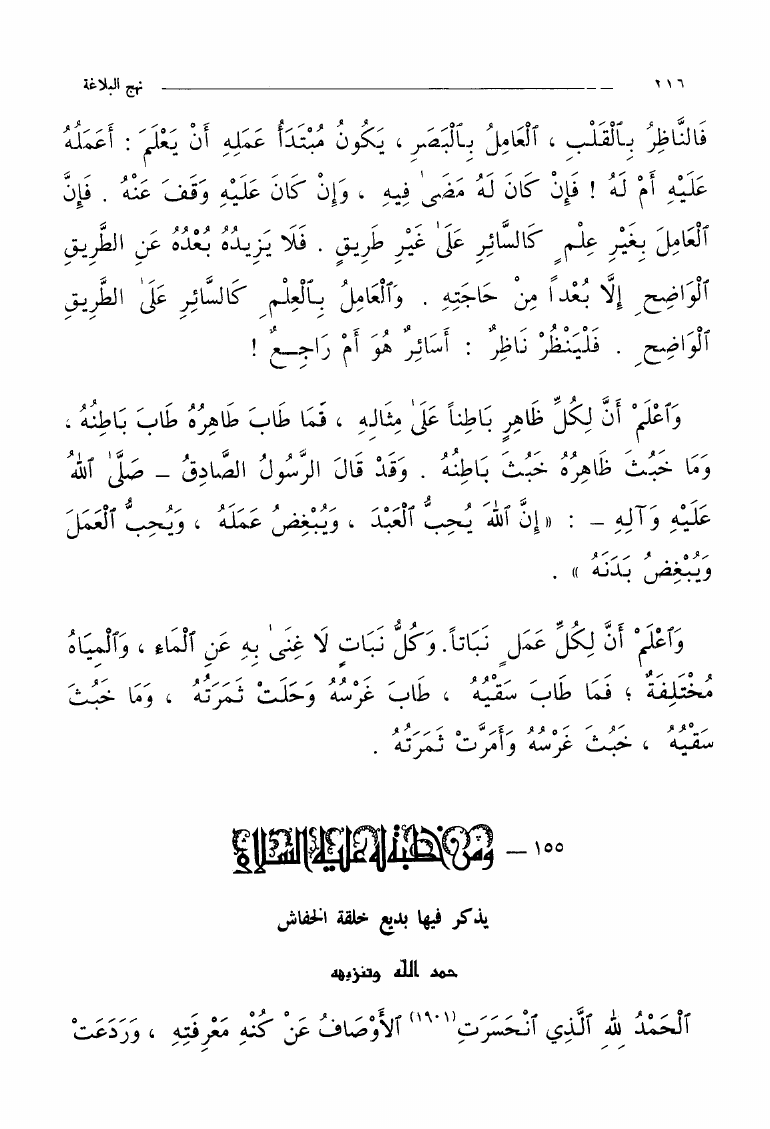 ٢١٦ نهج البلاغة
فَالنَّاظِرُ بِٱلْقَلْبِ ، ٱلْعَامِلُ بِٱلْبَصَرِ ، يَكُونُ مُبْتَدَأُ عَمَلِهِ أَنْ يَعْلَمَ : أَعَمَلُهُ
عَلَيْهِ أَمْ لَهُ ! فَإِنْ كَانَ لَهُ مَضَىٰ فِيهِ ، وَإِنْ كَانَ عَلَيْهِ وَقَفَ عَنْهُ . فَإِنَّ
ٱلْعَامِلَ بِغَيْرِ عِلْمٍ كَالسَّائِرِ عَلَىٰ غَيْرِ طَرِيقٍ . فَلَا يَزِيدُهُ بُعْدُهُ عَنِ الطَّرِيقِ
ٱلْوَاضِحِ إِلَّا بُعْداً مِنْ حَاجَتِهِ . وَٱلْعَامِلُ بِٱلْعِلْمِ كَالسَّائِرِ عَلَىٰ الطَّرِيقِ
ٱلْوَاضِحِ . فَلْيَنْظُرْ نَاظِرٌ : أَسَائِرٌ هُوَ أَمْ رَاجِعٌ !
وَٱعْلَمْ أَنَّ لِكُلِّ ظَاهِرٍ بَاطِناً عَلَىٰ مِثَالِهِ ، فَمَا طَابَ ظَاهِرُهُ طَابَ بَاطِنُهُ ،
وَمَا خَبُثَ ظَاهِرُهُ خَبُثَ بَاطِنُهُ . وَقَدْ قَالَ الرَّسُولُ الصَّادِقُ – صَلَّىٰ ٱللهُ
عَلَيْهِ وَآلِهِ – : « إِنَّ ٱللهَ يُحِبُّ ٱلْعَبْدَ ، وَيُبْغِضُ عَمَلَهُ ، وَيُحِبُّ ٱلْعَمَلَ
وَيُبْغِضُ بَدَنَهُ » .
وَٱعْلَمْ أَنَّ لِكُلِّ عَمَلٍ نَبَاتاً. وَكُلُّ نَبَاتٍ لَا غِنَىٰ بِهِ عَنِ ٱلْمَاءِ ، وَٱلْمِيَاهُ
مُخْتَلِفَةٌ ؛ فَمَا طَابَ سَقْيُهُ ، طَابَ غَرْسُهُ وَحَلَتْ ثَمَرَتُهُ ، وَمَا خَبُثَ
سَقْيُهُ ، خَبُثَ غَرْسُهُ وَأَمَرَّتْ ثَمَرَتُهُ .
١٥٥ – ومن خطبة له عليه السلام
يذكر فيها بديع خلقة الخفاش
حمد الله وتنزيهه
ٱلْحَمْدُ لِلهِ ٱلَّذِي ٱنْحَسَرَتِ(١٩٠١) ٱلْأَوْصَافُ عَنْ كُنْهِ مَعْرِفَتِهِ ، وَرَدَعَتْ